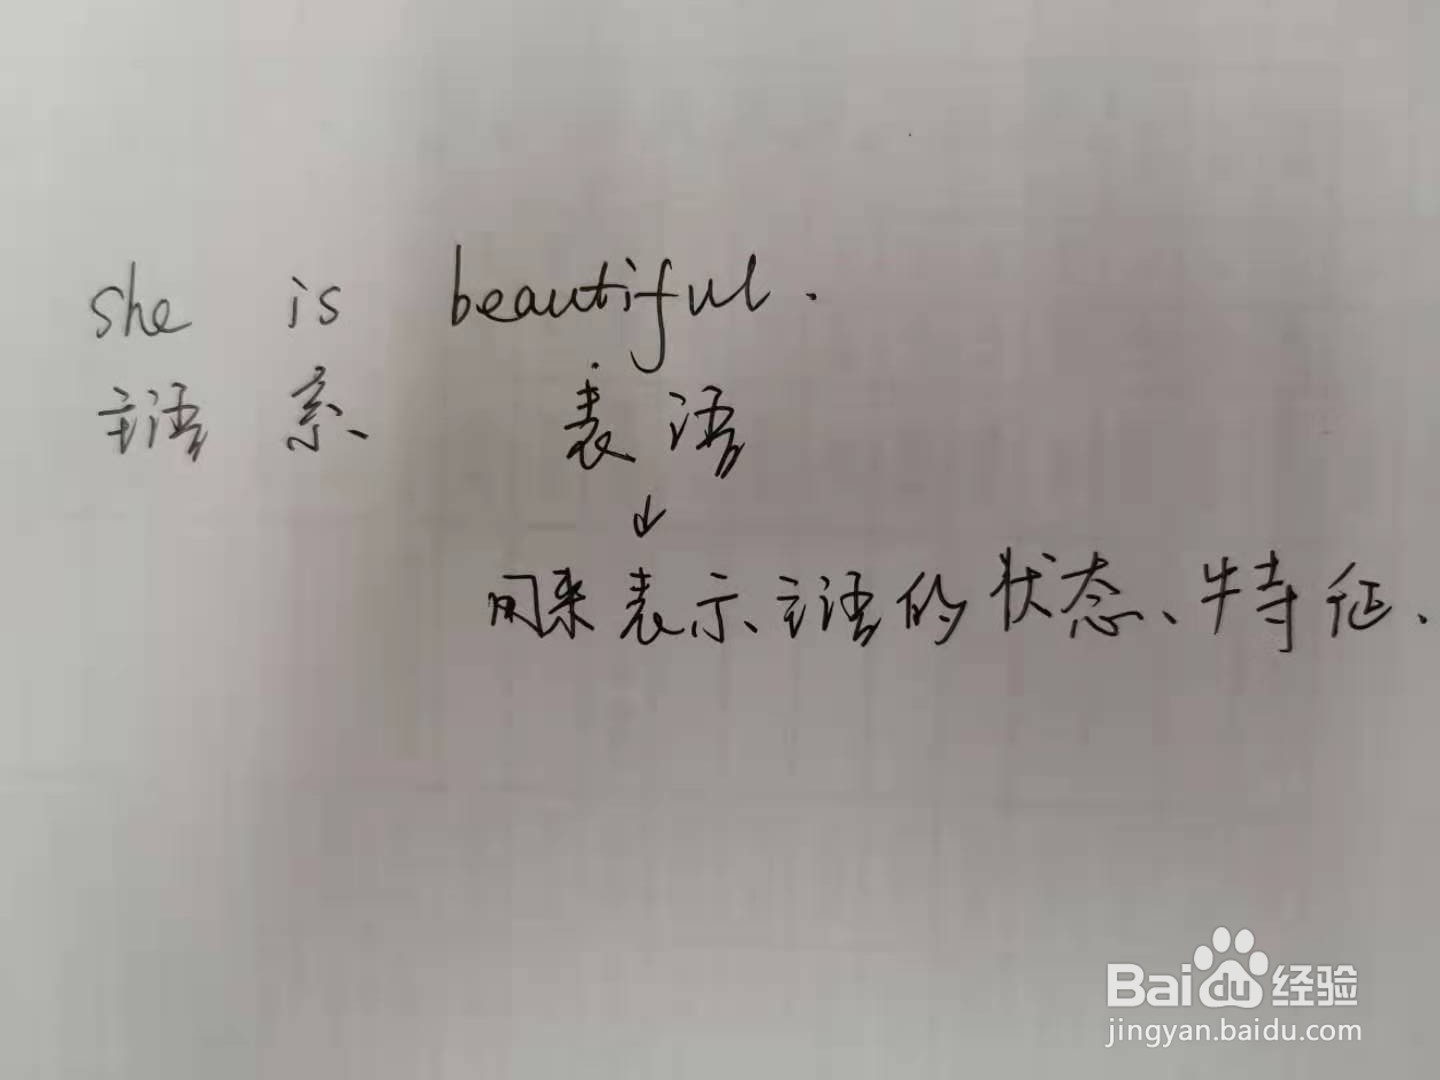 she is beautiful.
主语 系、 表语
↓
用来表示、主语的状态、特征.
Baidu经验
jingyan.baidu.com